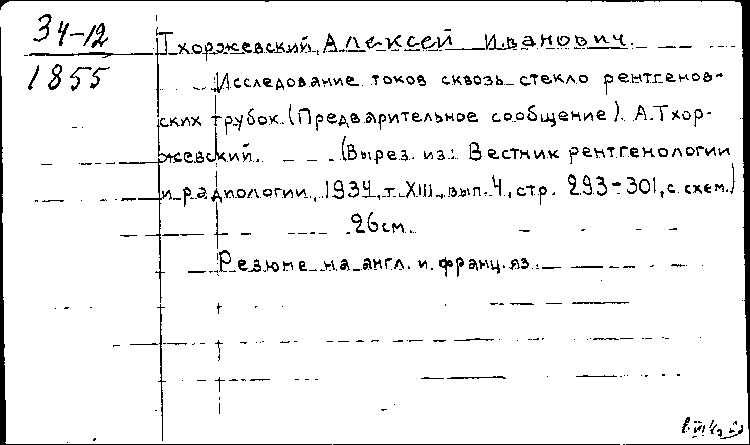 34-12
1855
Тхоржевский, Алексей Иванович.
Исследование токов сквозь стекло рентгенов-
ских трубок. (Предварительное сообщение). А. Тхор-
жевский. (Вырез. из: Вестник рентгенологии
и радиологии, 1934, т. XIII, вып. 4, стр. 293-301, с схем.)
26 см.
Резюме на англ. и франц. яз.